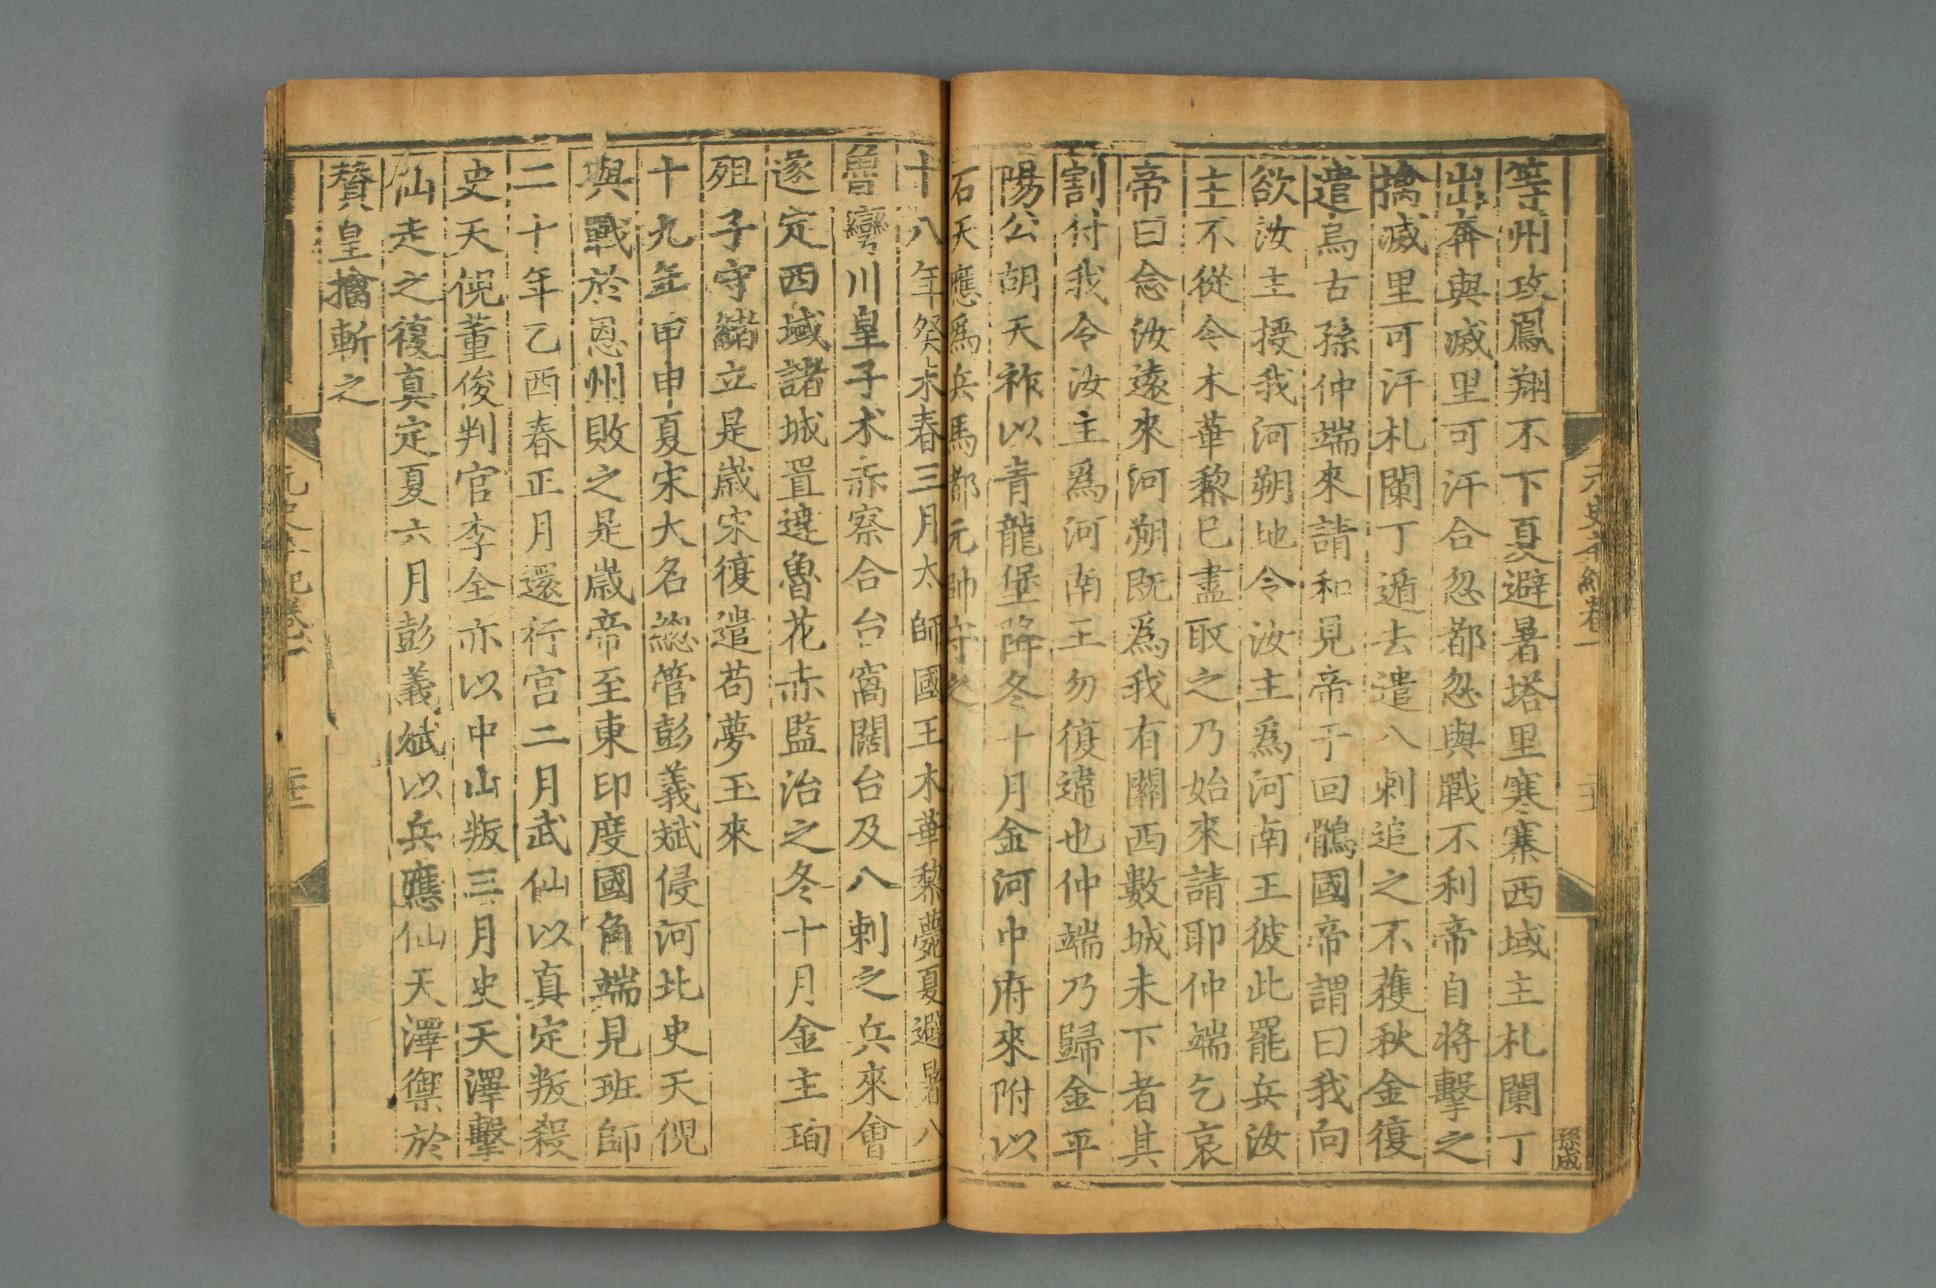 元史本紀卷一
等州攻鳳翔不下夏避暑塔里寒寨西域主札闌丁
出奔與滅里可汗合忽都忽與戰不利帝自將擊之
擒滅里可汗札闌丁遁去遣八剌追之不獲秋金復
遣烏古孫仲端來請和見帝于回鶻國帝謂曰我向
欲汝主授我河朔地令汝主爲河南王彼此罷兵汝
主不從今木華黎已盡取之乃始來請耶仲端乞哀
帝曰念汝遠來河朔既爲我有關西數城未下者其
割付我令汝主爲河南王勿復違也仲端乃歸金平
陽公胡天祚以青龍堡降冬十月金河中府來附以
石天應爲兵馬都元帥守之
孫成
十八年癸未春三月太師國王木華黎薨夏避暑八
魯彎川皇子朮赤察合台窩闊台及八剌之兵來會
遂定西域諸城置達魯花赤監治之冬十月金主珣
殂子守緒立是歲宋復遣苟夢玉來
十九年甲申夏宋大名緫管彭義斌侵河北史天倪
與戰於恩州敗之是歲帝至東印度國角端見班師
二十年乙酉春正月還行宮二月武仙以真定叛殺
史天倪董俊判官李全亦以中山叛三月史天澤擊
仙走之復真定夏六月彭義斌以兵應仙天澤禦於
贊皇擒斬之
元史本紀卷一